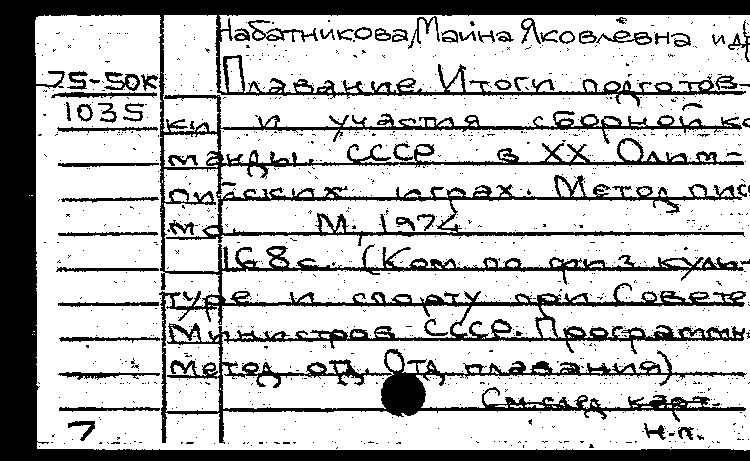 Набатникова, Маина Яковлевна и др
75-50к
1035
Плавание. Итоги подготов-
ки и участия сборной ко
манды СССР в XX Олим-
пийских играх. Метод пис
мо. М., 1974
168 с. (Ком по физ куль-
туре и спорту при Совете
Министров СССР. Программн
метод отд. Отд плавания)
См. след карт.
7
н.п.